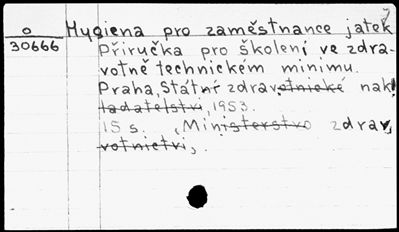 o Hygiena pro zaměstnance jatek
30666 Příručka pro školení ve zdra-
votně technickém minimu.
Praha, Státní zdravotnické nak
ladatelství, 1953.
15 s. , Ministerstvo zdrav,
votnictví,.